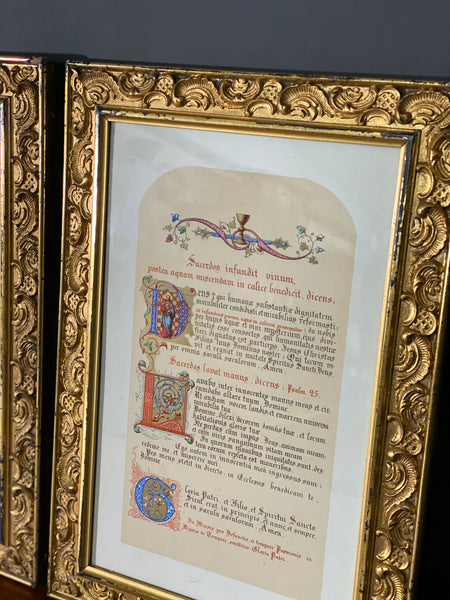 Sacerdos infundit vinum,
postea aquam miscendam in calice benedicit, dicens,
Deus ✝ qui humanæ substantiæ dignitatem
mirabiliter condidisti et mirabilius reformasti:
et infundens parum aquæ in calicem prosequitur: da nobis
per hujus aquæ et vini mysterium ejus divi-
nitatis esse consortes, qui humanitatis nostræ
fieri dignatus est particeps Jesus Christus
Filius tuus Dominus noster: Qui tecum vi-
vit et regnat in unitate Spiritus Sancti Deus
per omnia sæcula sæculorum. Amen.
Sacerdos lavat manus, dicens: Psalm 25.
Lavabo inter innocentes manus meas et cir-
cumdabo altare tuum, Domine.
Ut audiam vocem laudis et enarrem universa
mirabilia tua.
Domine, dilexi decorem domus tuæ, et locum
habitationis gloriæ tuæ.
Ne perdas cum impiis, Deus, animam meam,
et cum viris sanguinum vitam meam
In quorum manibus iniquitates sunt: dex-
tera eorum repleta est muneribus
Ego autem in innocentia mea ingressus sum:
redime me et miserere mei
Pes meus stetit in directo, in Ecclesiis benedicam te,
Domine
Gloria Patri, et Filio, et Spiritui Sancto.
Sicut erat in principio, et nunc, et semper,
et in sæcula sæculorum, Amen.
In Missis pro Defunctis, et tempore Passionis in
Missis de Tempore, omittitur Gloria Patri